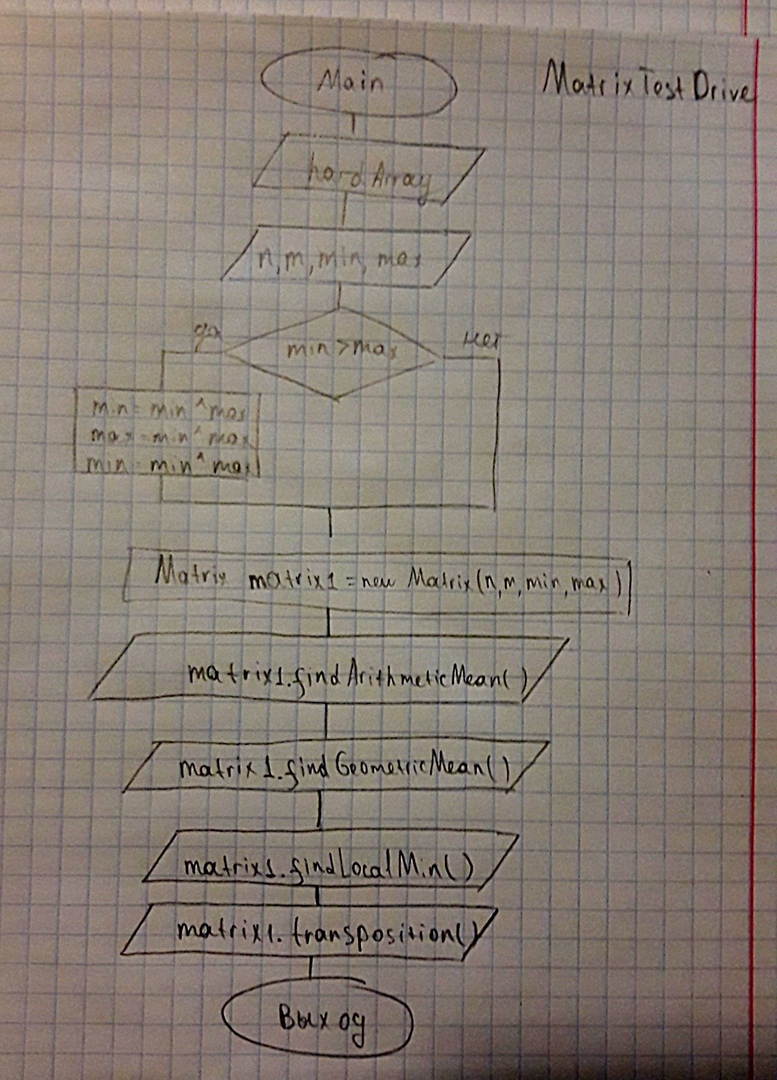 Main
MatrixTestDrive
hardArray
n,m,min,max
да
min>max
нет
min=min^max
max=min^max
min=min^max
Matrix matrix1=new Matrix(n,m,min,max)
matrix1.findArithmeticMean()
matrix1.findGeometricMean()
matrix1.findLocalMin()
matrix1.transposition()
Выход